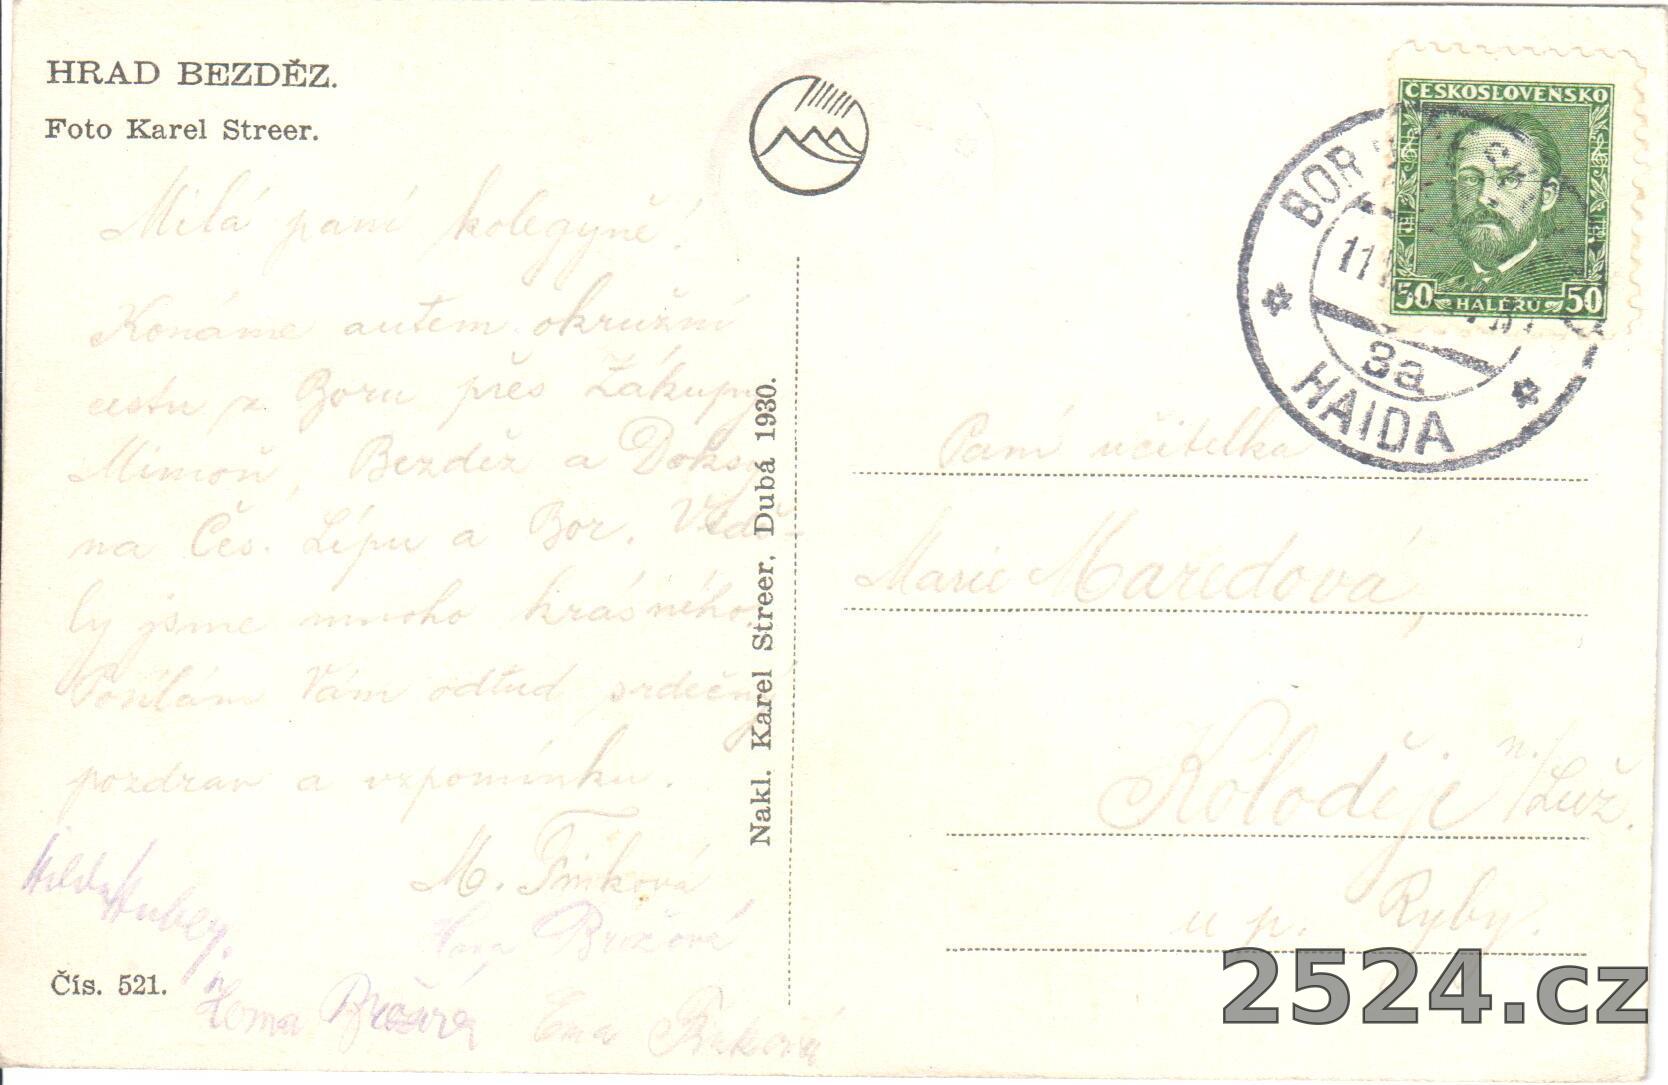 HRAD BEZDĚZ.
Foto Karel Streer.
Milá paní kolegyně!
Konáme autem okružní
cestu z Boru přes Zákupy
Mimoň, Bezděz a Doksy
na Čes. Lípu a Bor. Vidě-
ly jsme mnoho krásného.
Posílám Vám odtud srdečný
pozdrav a vzpomínku.
M.
Čís. 521.
Nakl. Karel Streer, Dubá 1930.
ČESKOSLOVENSKO
50 HALÉŘŮ 50
BOR
3a
HAIDA
Paní učitelka
Marie Maredová,
Koloděje n./Luž.
u p. Ryby.
2524.cz